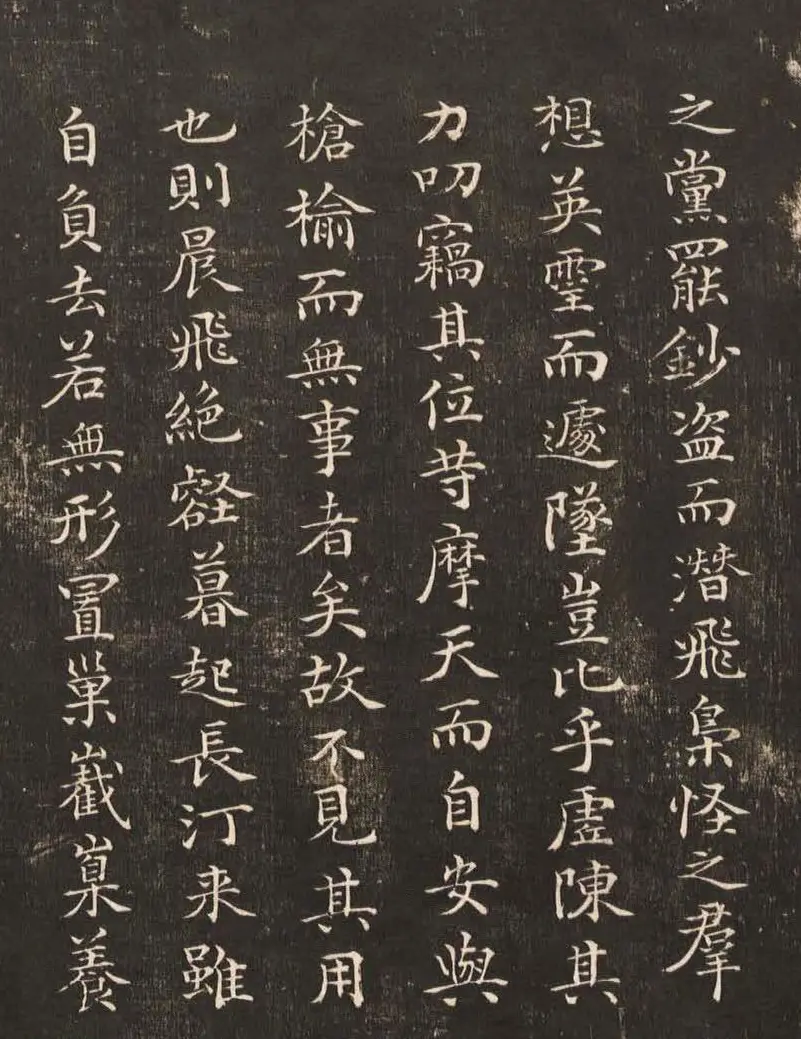 之黨罷鈔盗而潛飛梟怪之羣
想英霊而遽墜豈比乎虚陳其
力叨竊其位等摩天而自安與
槍榆而無事者矣故不見其用
也則晨飛絶壑暮起長汀来雖
自負去若無形置巢截嶪養